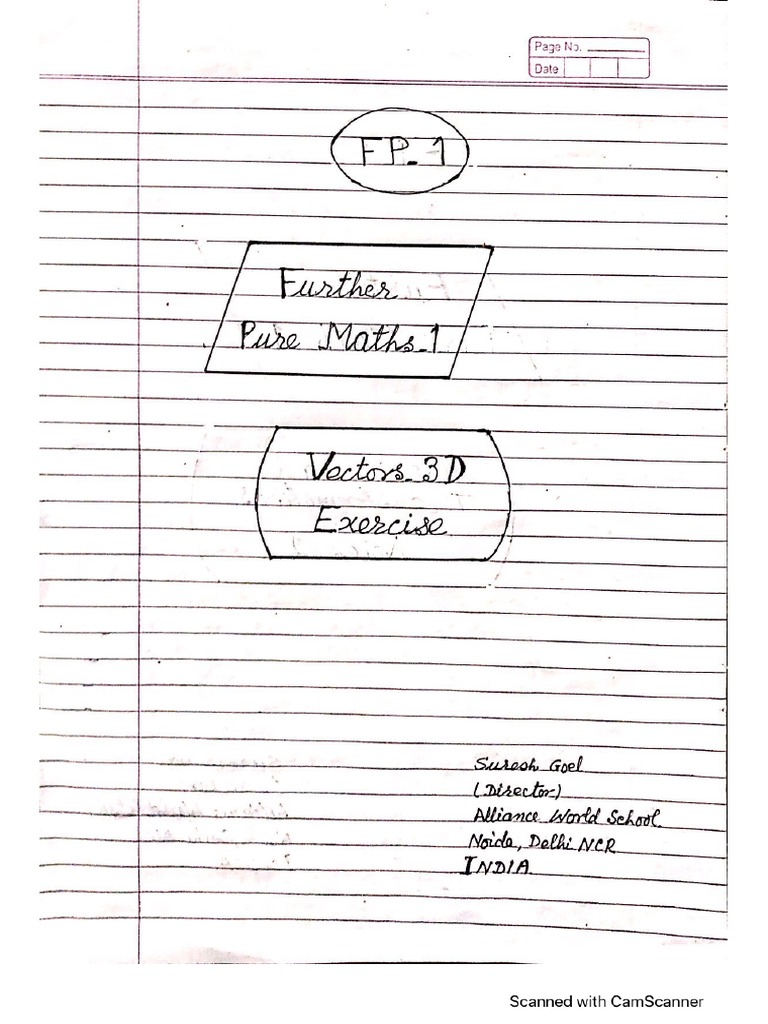 Page No.
Date
FP-1
Further
Pure Maths-1
Vectors-3D
Exercise
Suresh Goel
(Director)
Alliance World School.
Noida, Delhi NCR
INDIA
Scanned with CamScanner